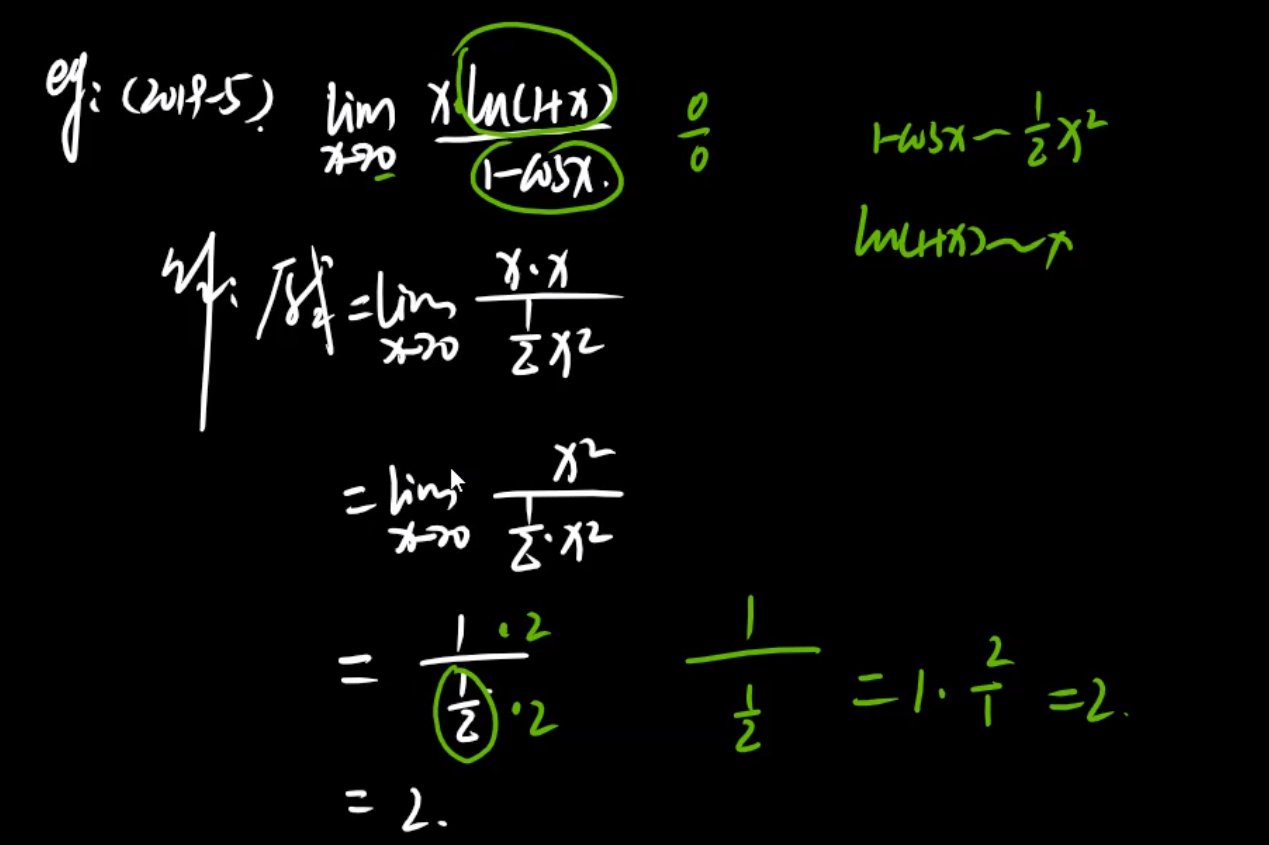 eg: (2019-5). lim x→0 x·ln(1+x) / 1-cosx. 0/0 1-cosx ~ 1/2 x²
ln(1+x) ~ x
解: 原式 = lim x→0 x·x / 1/2 x²
= lim x→0 x² / 1/2·x²
= 1·2 / 1/2·2 1 / 1/2 = 1·2/1 = 2.
= 2.